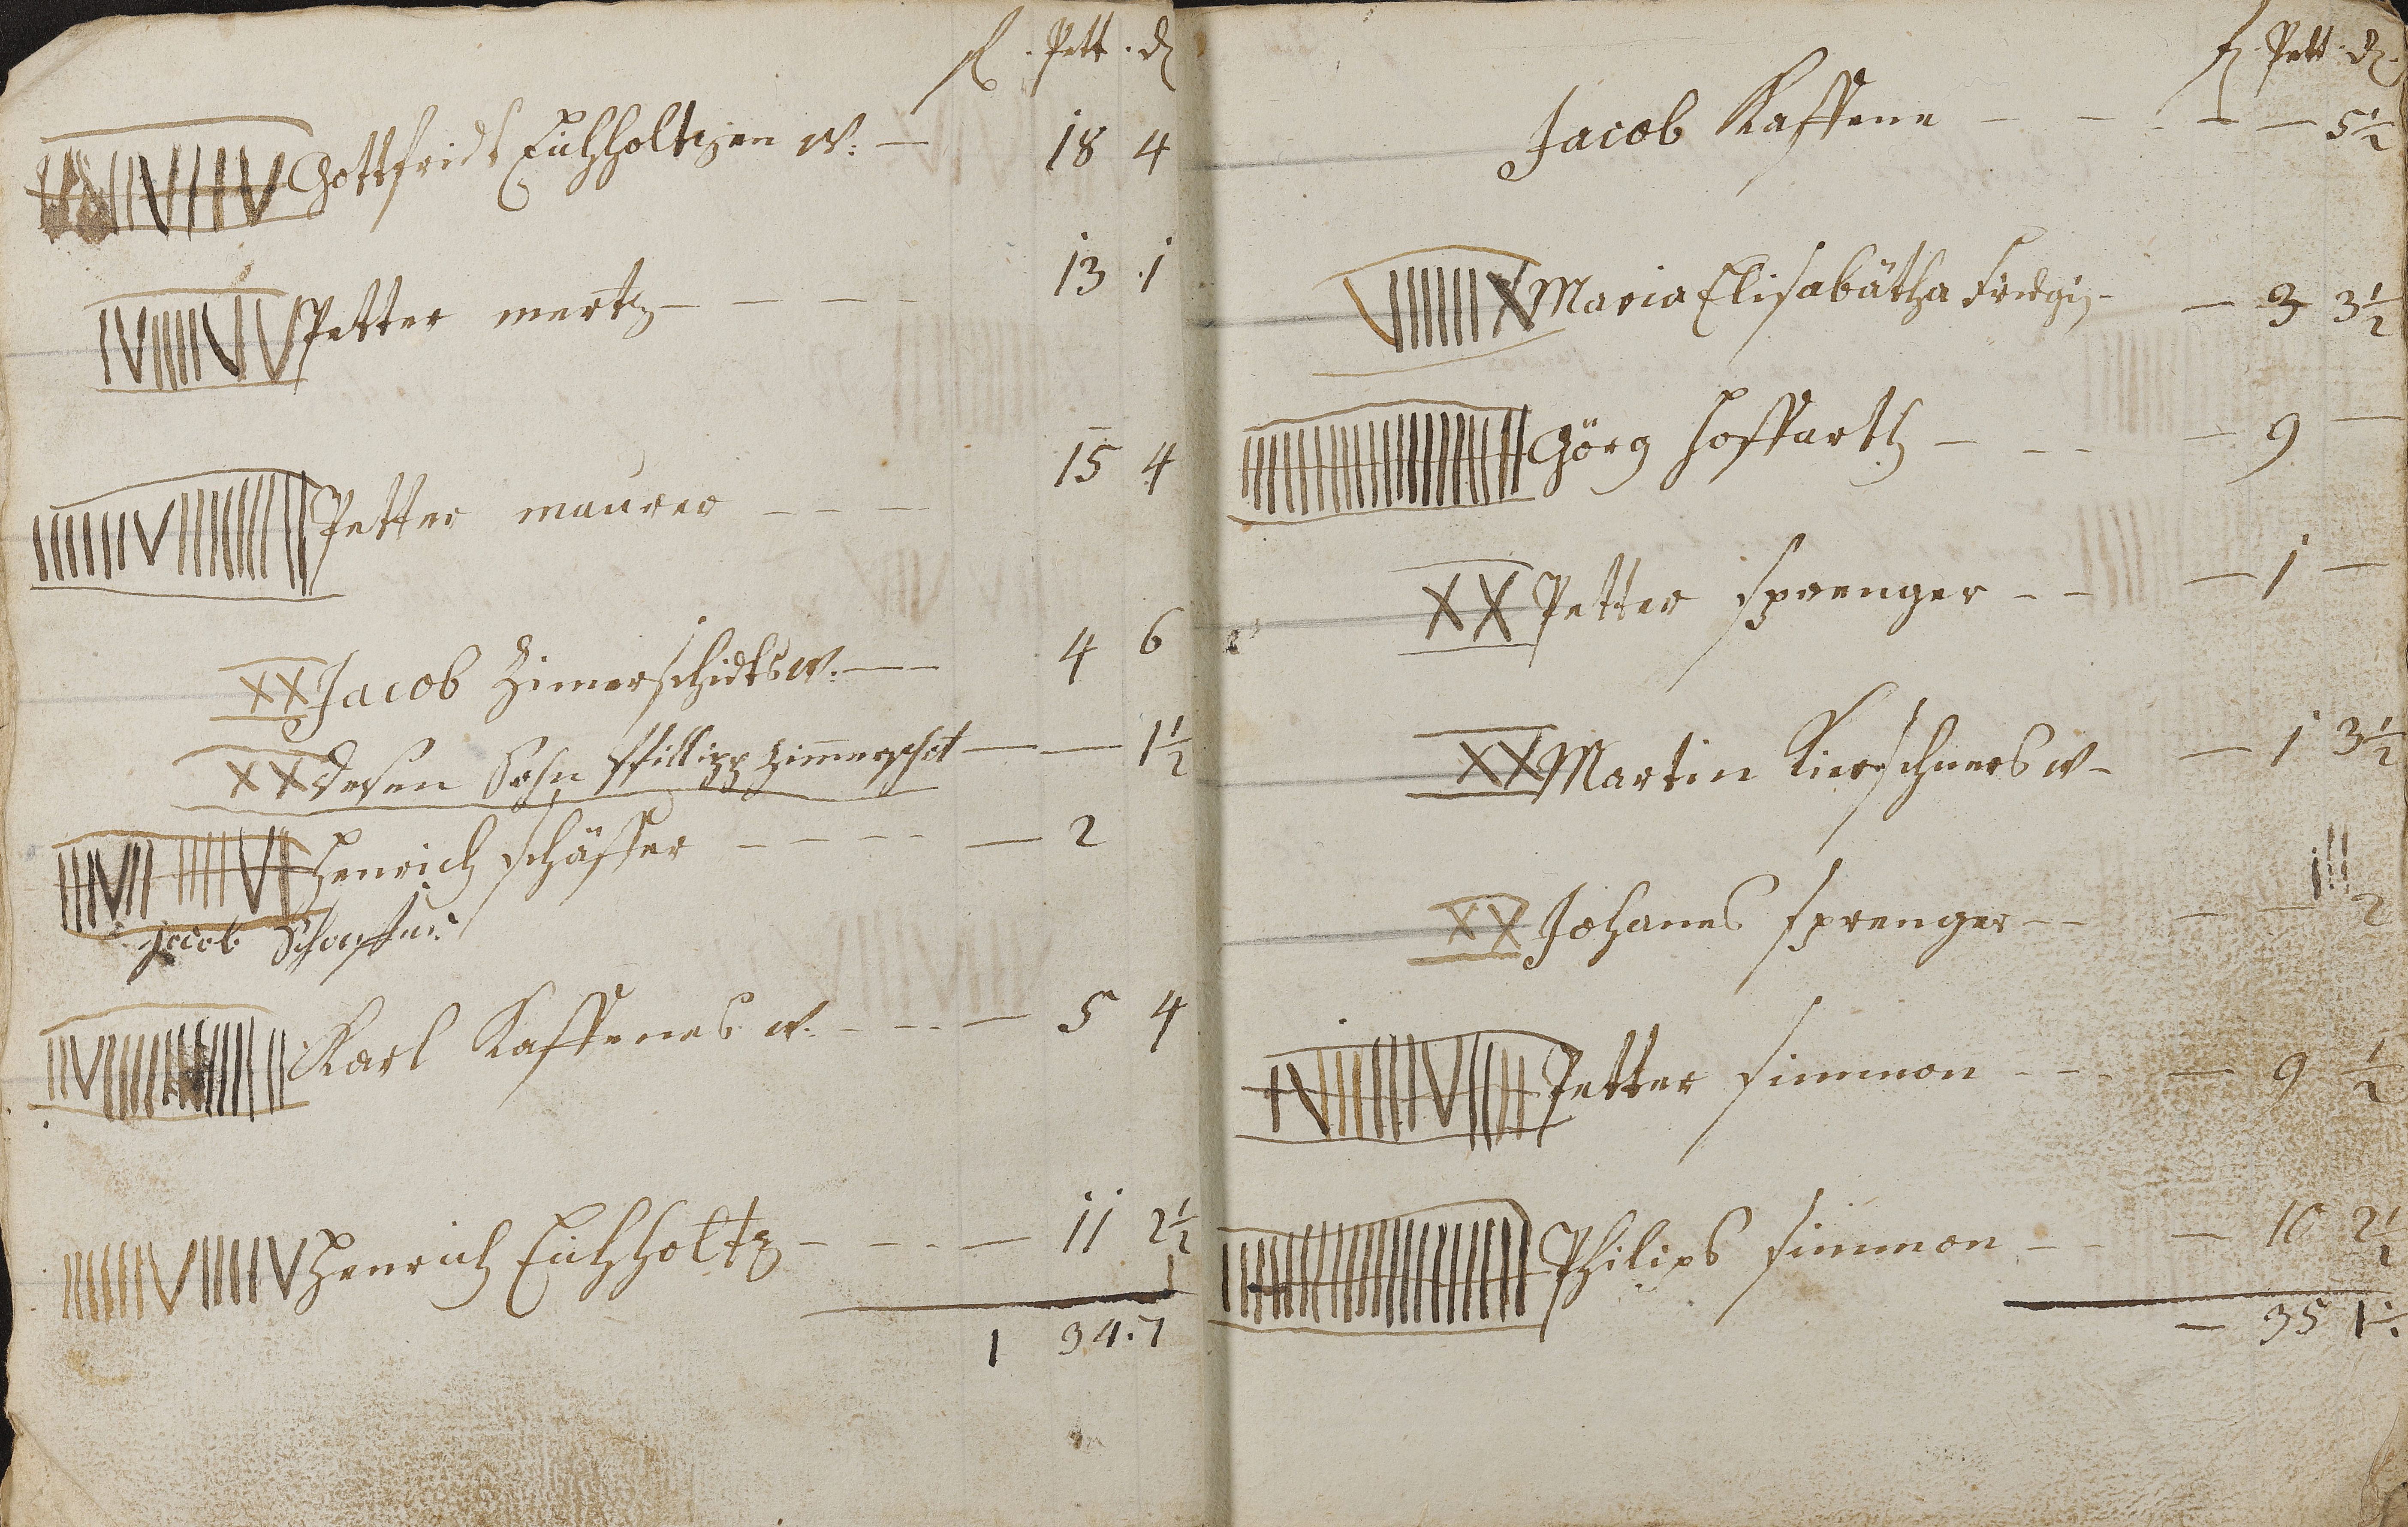 fl. Pett. d
Gottfridt Eichholtzen w. — 18 4
Petter mertz — — — 13 1
Petter maurer — — — 15 4
XX Jacob Zimerschidts w. — — 4 6
XX desen Sohn Phillipp Zimmerschit — — 1½
Henrich schäffer — — — — 2
Jacob
Karl Kaffenes w. — — — 5 4
Henrich Eichholtz — — — 11 2½
1 34.7
fl. Pett. d
Jacob Kaffene — — — — 5½
Maria Elisabätha — 3 3½
Görg Hoffarth — — — 9 —
XX Petter sprenger — — — 1 —
XX Martin Kierschners w — — 1 3½
XX Johanes sprenger — — — 2
Petter simmon — — — 9 ½
Philips simmon — — — 10 2½
— 35 1½